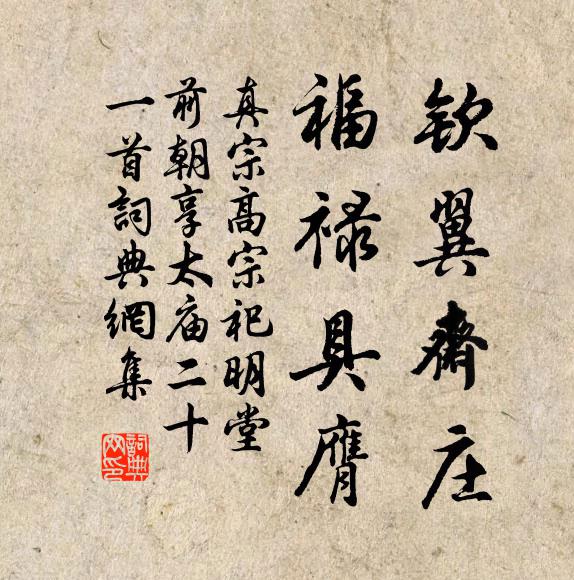 钦翼齋庄
福禄具膺
真宗高宗祀明堂
前朝享太庙二十
一首詞典網集
詞典
网印